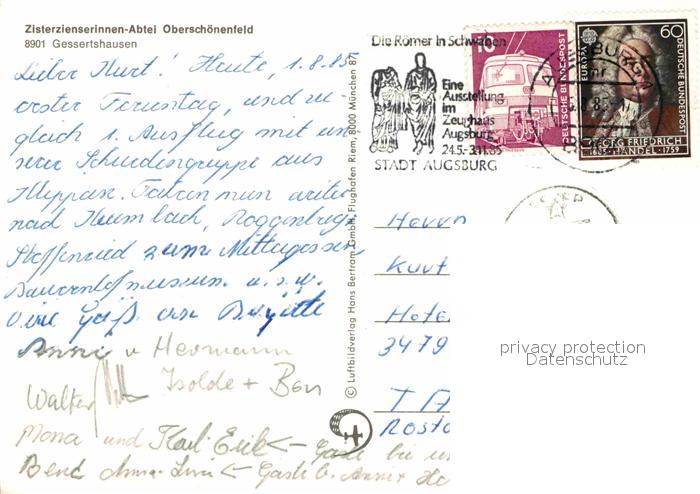 Zisterzienserinnen-Abtei Oberschönenfeld
8901 Gessertshausen
Lieber Kurt! Heute, 1.8.85
erster Ferientag, und zu-
gleich 1. Ausflug mit un
serer aus
Fahren nun weiter
nach Krumbach, Roggenburg
Stoffenried zum Mittagessen
Bauernhofmuseum. u.s.w.
Viele Grüße
Anni u Hermann
Walter
Isolde + Ben
Mona und Karl-Erik ← Gäste bei un
Bend ← Gäste b. Anni + He
© Luftbildverlag Hans Bertram GmbH, Flughafen Riem, 8000 München 87
Die Römer in Schwaben
Eine
Ausstellung
im
Zeughaus
Augsburg
24.5.-3.11.85
STADT AUGSBURG
10
DEUTSCHE BUNDESPOST
EUROPA
60
DEUTSCHE BUNDESPOST
GEORG FRIEDRICH
1685 HÄNDEL 1759
Herrn
Kurt
Hote
3479
TA
Rosto
privacy protection
Datenschutz